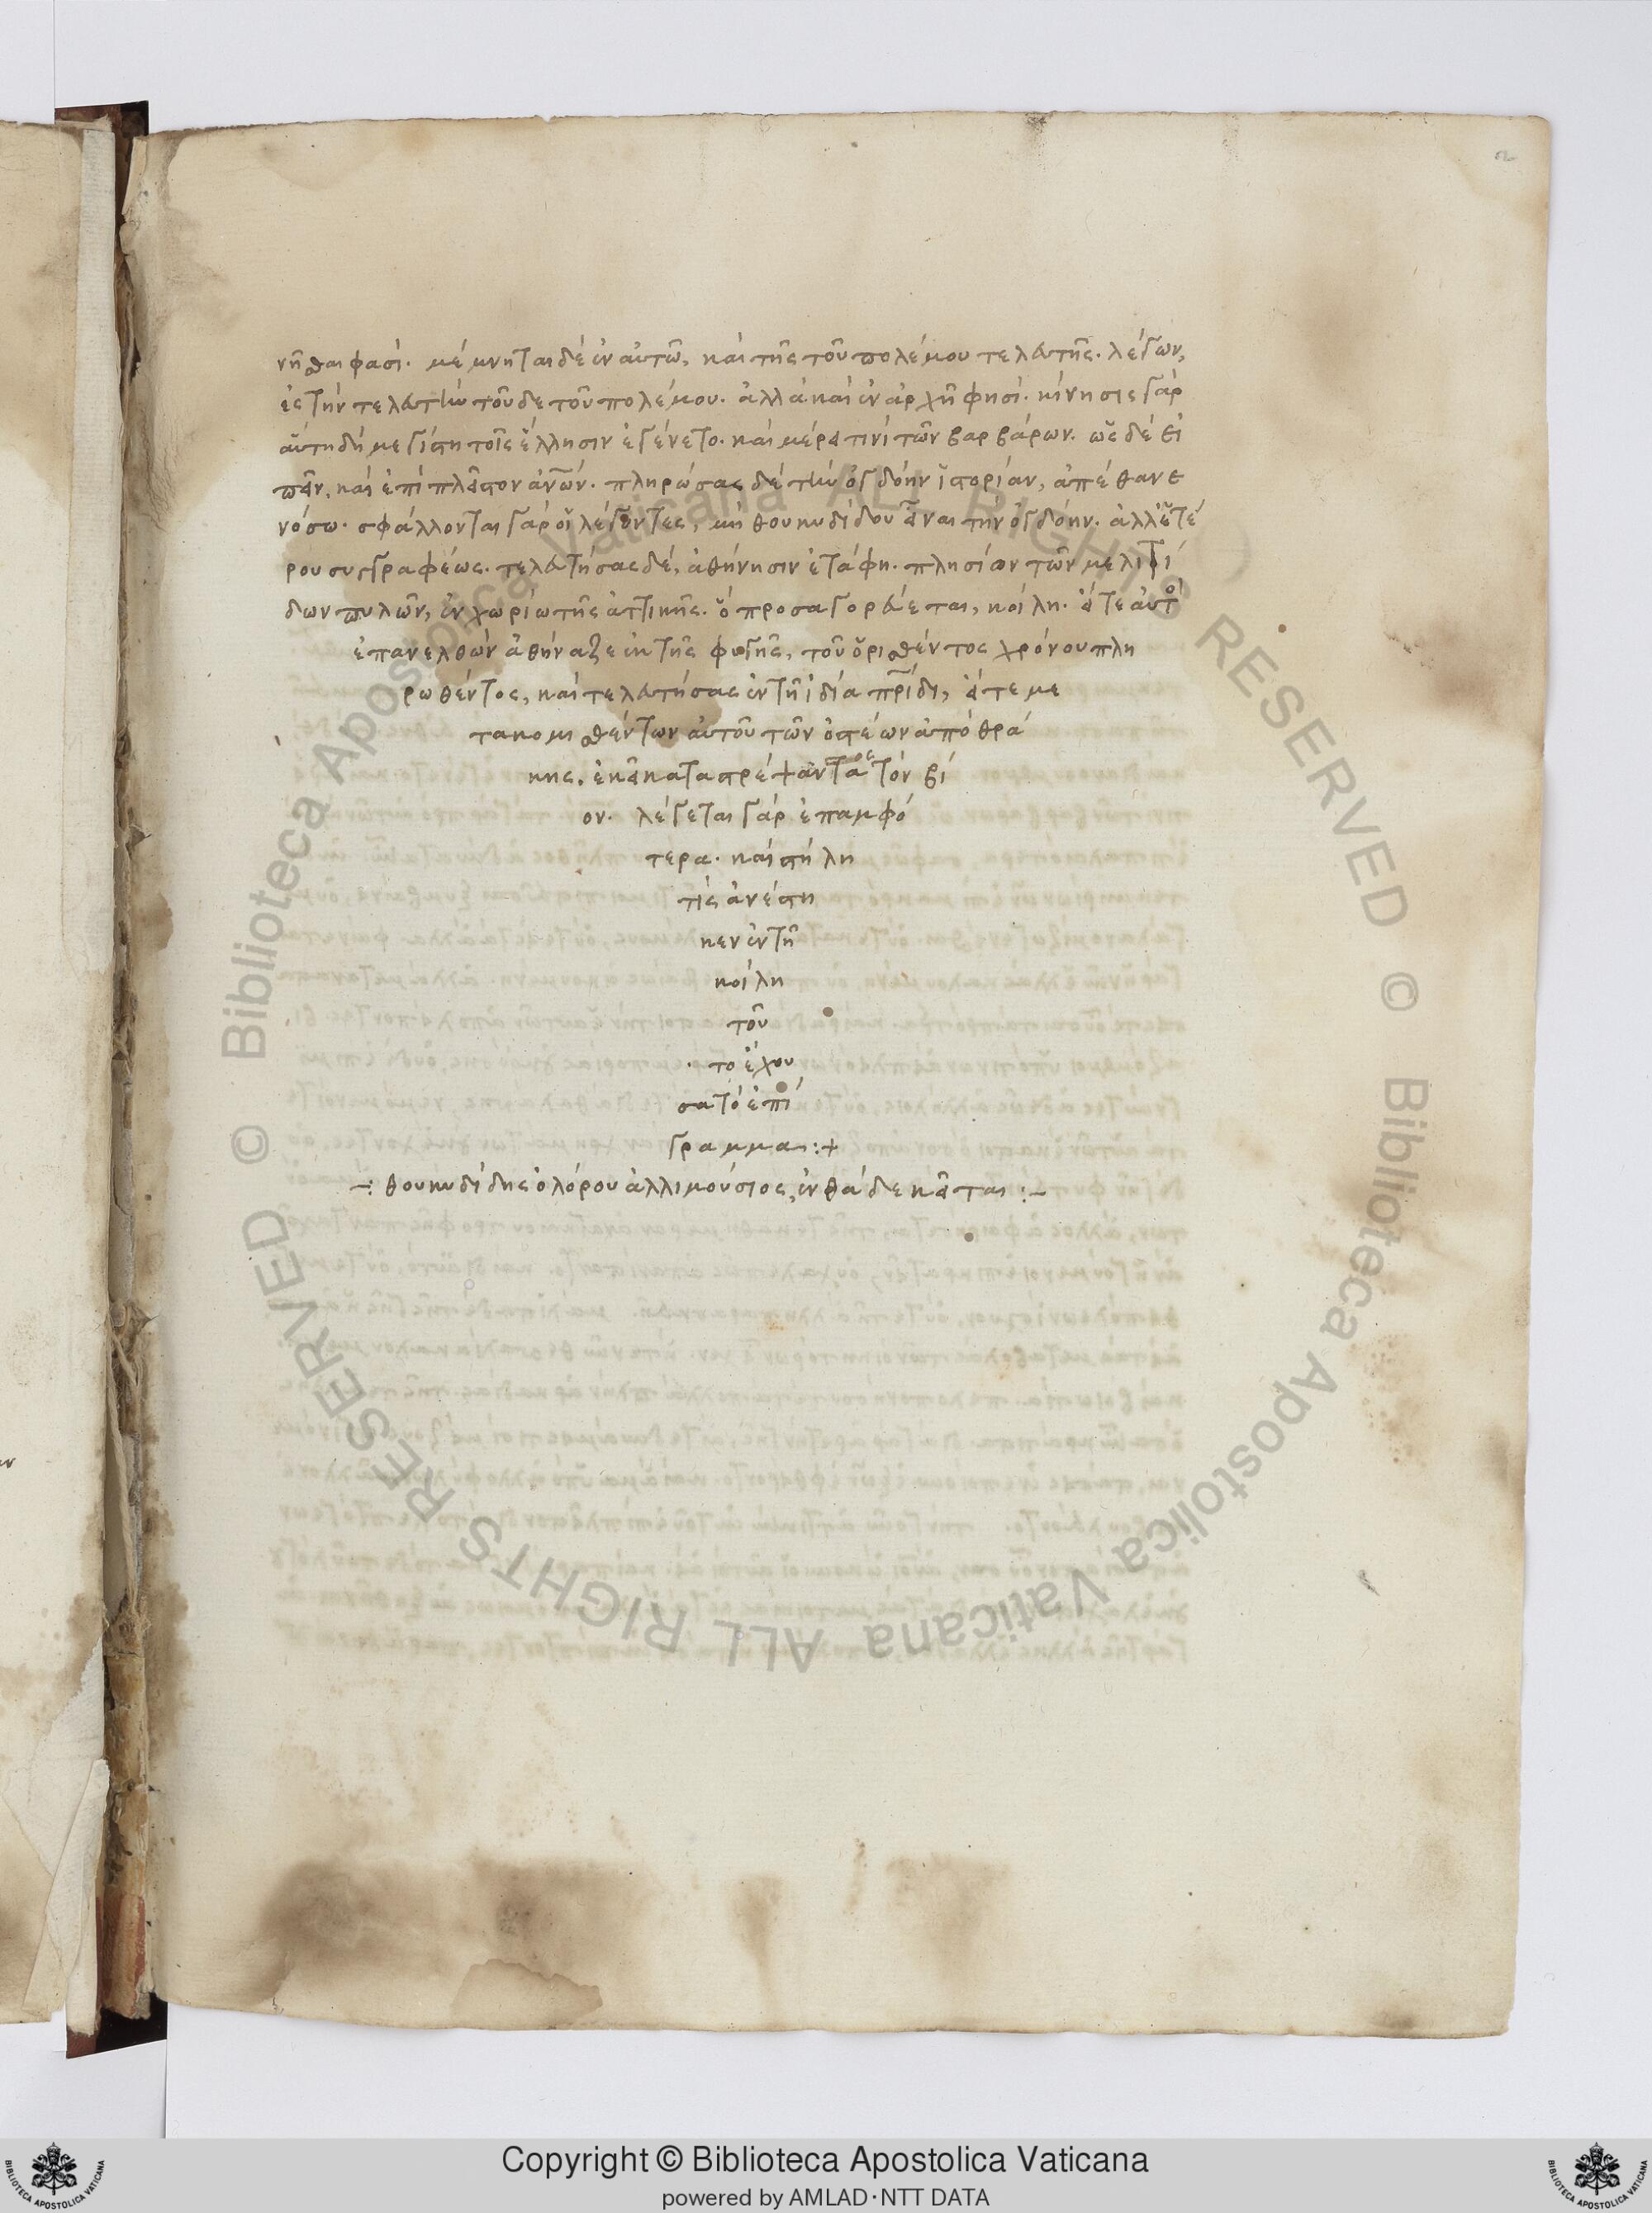 νῆσθαι φασί. μέμνηται δὲ ἐν αὐτῶ, καὶ τῆς τοῦ πολέμου τελευτῆς. λέγων,
ἐς τὴν τελευτὴν τοῦδε τοῦ πολέμου. ἀλλὰ καὶ ἐν ἀρχῆ φησί. κίνησις γὰρ
αὕτη δὴ μεγίστη τοῖς ἕλλησιν ἐγένετο. καὶ μέρει τινὶ τῶν βαρβάρων. ὡς δὲ εἰ
πεῖν, καὶ ἐπὶ πλεῖστον ἀνῶν. πληρώσας δὲ τὴν ὀγδόην ἱστορίαν, ἀπέθανε
νόσω. σφάλλονται γὰρ οἱ λέγοντες, μὴ θουκυδίδου εἶναι τὴν ὀγδόην. ἀλλ' ἑτέ
ρου συγγραφέως. τελευτήσας δὲ, ἀθήνησιν ἐτάφη. πλησίον τῶν μελιτί
δων πυλῶν, ἐν χωρίω τῆς ἀττικῆς. ὃ προσαγορεύεται, κοίλη. εἴτε αὐτὸ
ἐπανελθὼν ἀθήναζε ἐκ τῆς φυγῆς, τοῦ ὁρισθέντος χρόνου πλη
ρωθέντος, καὶ τελευτήσας ἐν τῆ ἰδία πρίδι, εἴτε με
τακομισθέντων αὐτοῦ τῶν ὀστέων ἀπὸ θρά
κης. ἐκεῖ καταστρέψαντος τὸν βί
ον. λέγεται γὰρ ἐπ' ἀμφό
τερα. καὶ στήλη
τὶς ἀνέστη
κεν ἐν τῆ
κοίλη
τοῦ
το ἔχου
σα τὸ ἐπί
γραμμα :+
-: θουκυδίδης ὀλόρου ἁλλιμούσιος, ἐνθάδε κεῖται :-
© Biblioteca Apostolica Vaticana ALL RIGHTS RESERVED
© Biblioteca Apostolica Vaticana ALL RIGHTS RESERVED
Copyright © Biblioteca Apostolica Vaticana
powered by AMLAD·NTT DATA
BIBLIOTECA APOSTOLICA VATICANA
BIBLIOTECA APOSTOLICA VATICANA